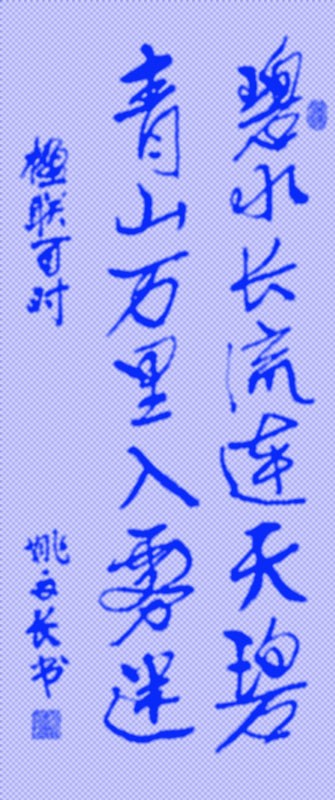 碧水长流连天碧
青山万里入雾迷
楹联 时
姚 长书